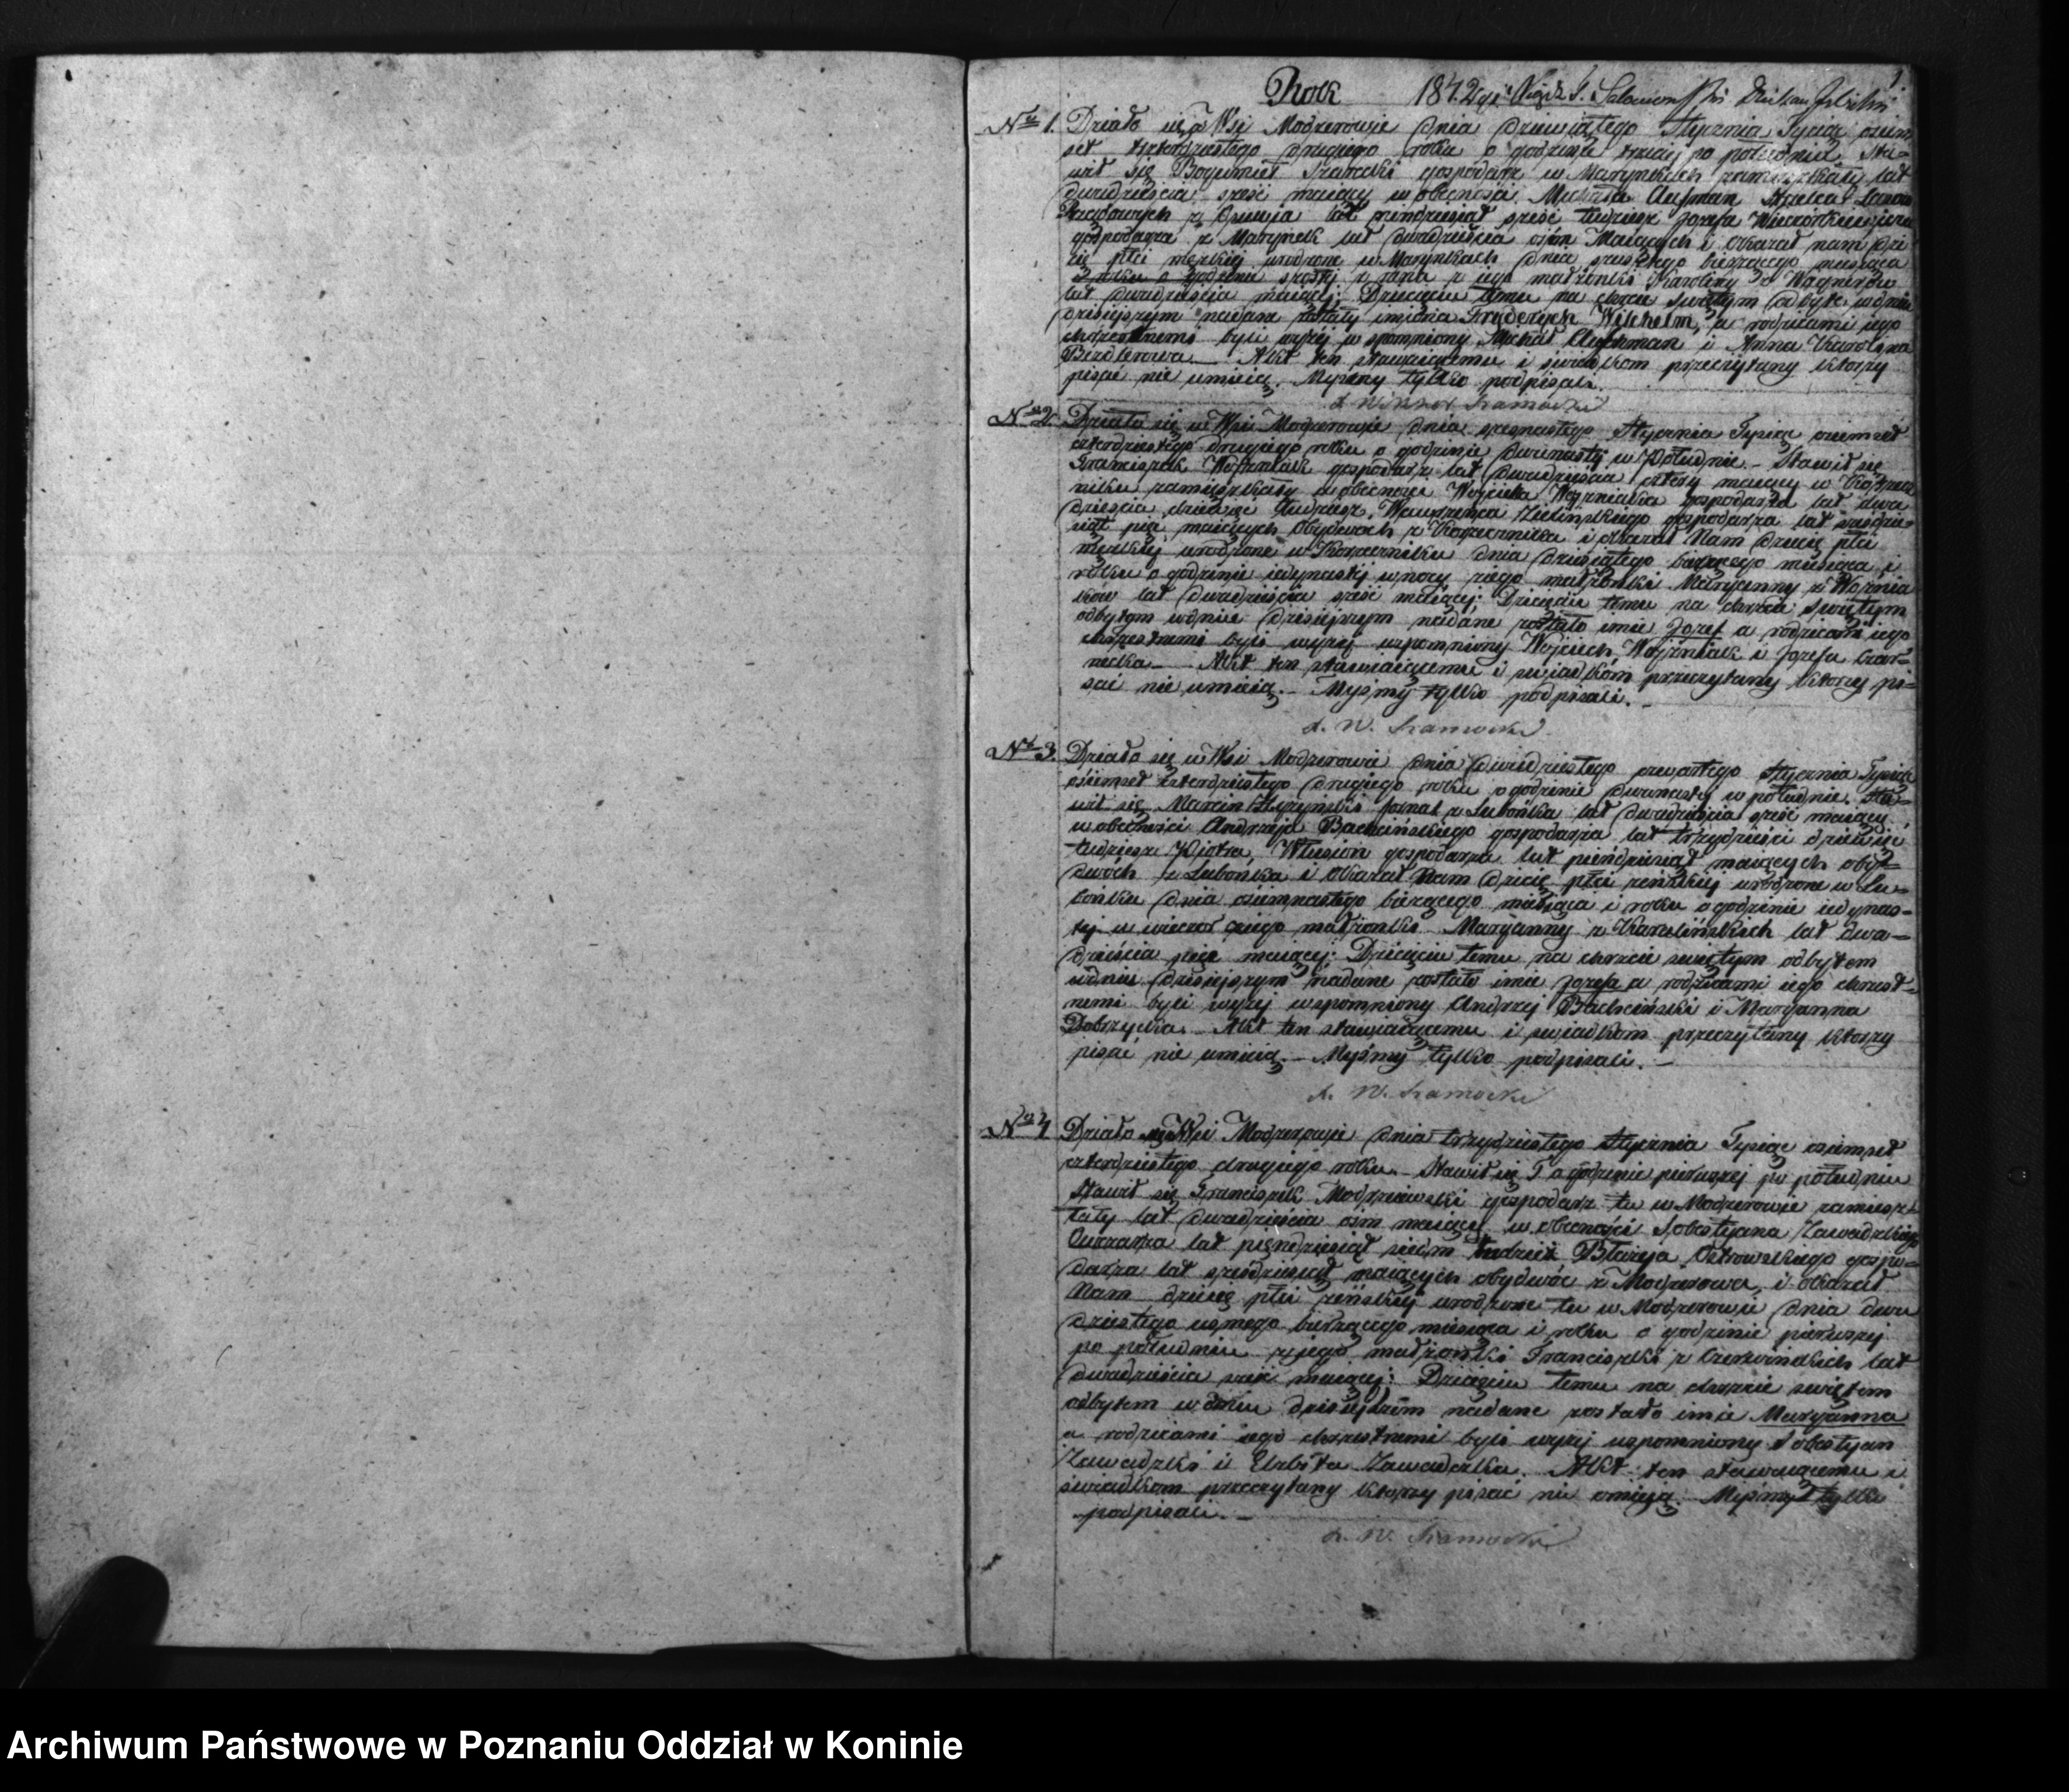 Rok 1842
1.
No 1. Działo się w Wsi Modzerowie dnia dziewiątego Stycznia Tysiąc ośm
set czterdziestego drugiego roku o godzinie trzeciej po południu. Sta=
wił się Bogumieł gospodarz w Marynkach zamieszkały lat
dwadzieścia sześć maiący w obecności Michała
lat piendziesiąt sześć tudziesz Jozefa
gospodarza z Marynek lat dwadzieścia ośm Maiących i okazał nam dzi
cię płci męzkiej urodzone w Marynkach dnia szustego bieżącego miesiąca
i roku o godzinie szostej z rana z iego małżonki Karoliny z Wagnerów
lat dwadzieścia maiącej. Dziecięciu temu na chrzcie świętym odbytym w dniu
dzisiejszym nadane zostały imiona Fryderych Wilhelm, a rodzicami iego
chrzestnemi byli wyżej wspomniony Michał i Anna Karolina
Akt ten stawaiącemu i świadkom przeczytany ktorzy
pisać nie umieią. Myśmy tylko podpisali.
No 2. Działo się w Wsi Modzerowie dnia szesnastego Stycznia Tysiąc ośmset
czterdziestego drugiego roku o godzinie dwunastej w Południe. – Stawił się
Franciszek Woźniak gospodarz lat dwadzieścia cztery maiący w
niku zamieszkały w obecności Wojciecha Woźniaka gospodarza lat dwa
dzieścia dziewięć tudziesz Wawrzeńca Zielińskiego gospodarza lat sześdzie=
siąt pięć maiących Obydwoch z Kozarnika i okazał Nam dziecię płci
męzkiej urodzone w dnia dziesiątego bieżącego miesiąca i
roku o godzinie iedynastej w nocy z iego małżonki Maryanny z Woźnia
ków lat dwadzieścia sześć maiącej. Dziecięciu temu na chrzcie świętym
odbytym w dniu dzisiejszym nadane zostało imie Jozef a rodzicami iego
chrzestnemi byli wyżej wspomniony Wojciech Woźniak i Jozefa Czar=
necka. – Akt ten stawaiącemu i świadkóm przeczytany ktorzy pi=
sać nie umieią. – Myśmy tylko podpisali. –
No 3. Działo się w Wsi Modzerowie dnia dwudziestego czwartego Stycznia Tysiąc
ośiemset czterdziestego drugiego roku o godzinie dwunastej w południe. Sta=
wił się Marcin z Lubońka lat dwadzieścia sześć maiący.
w obecności Andrzeja Bachcińskiego gospodarza lat trzydzieści dziewięć
tudziesz Piotra gospodarza lat pieńdziesiąt maiących oby=
dwóch z Lubońka i okazał Nam dziecię płci żeńskiej urodzone w Lu=
bońku dnia ośiemnastego bieżącego miesiąca i roku o godzinie iedynas=
tej w wieczor z iego małżonki Maryanny z Karolińskich lat dwa=
dzieścia pięć maiącej: Dziecięciu temu na chrzcie świętym odbytem
w dniu dzisiejszym nadane zostało imie Jozefa a rodzicami iego chrzest=
nemi byli wyżej wspomniony Andrzej Bachciński i Maryanna
Dobrzycka. – Akt ten stawaiącemu i świadkom przeczytany ktorzy
pisać nie umieią. – Myśmy tylko podpisali. –
No 4 Działo się w Wsi Modzerowie dnia trzydziestego Stycznia Tysiąc ośiemset
czterdziestego drugiego roku. – Stawił się o godzinie pierwszej po południu
Stawił się Franciszek Modrzejewski gospodarz tu w Modzerowie zamiesz=
kały lat dwadzieścia ośm maiący w obecności Sobestyana Zawadzkiego
Owczarza lat piendziesiąt siedm tudzież Błażeja Ostrowskiego gospo=
darza lat sześdziesiąt maiących obydwóc z Modzerowa, i okazał
Nam dziecię płci żeńskiej urodzone tu w Modzerowie dnia dwu
dziestego usmego bierzącego miesiąca i roku o godzinie pierwszej
po południu z jego małżonki Franciszki z Czerwinskich lat
dwadzieścia sześć maiącej: Dziecięciu temu na chrzcie świętem
odbytem w dniu dzisiejszem nadane zostało imie Maryanna
a rodzicami iego chrzestnemi byli wyżej wspomniony Sobestyan
Zawadzki i Elzbieta Zawadzka. Akt ten stawaiącemu i
świadkom przeczytany ktorzy pisać nie umieją. Myśmy tylko
podpisali. –
Archiwum Państwowe w Poznaniu Oddział w Koninie